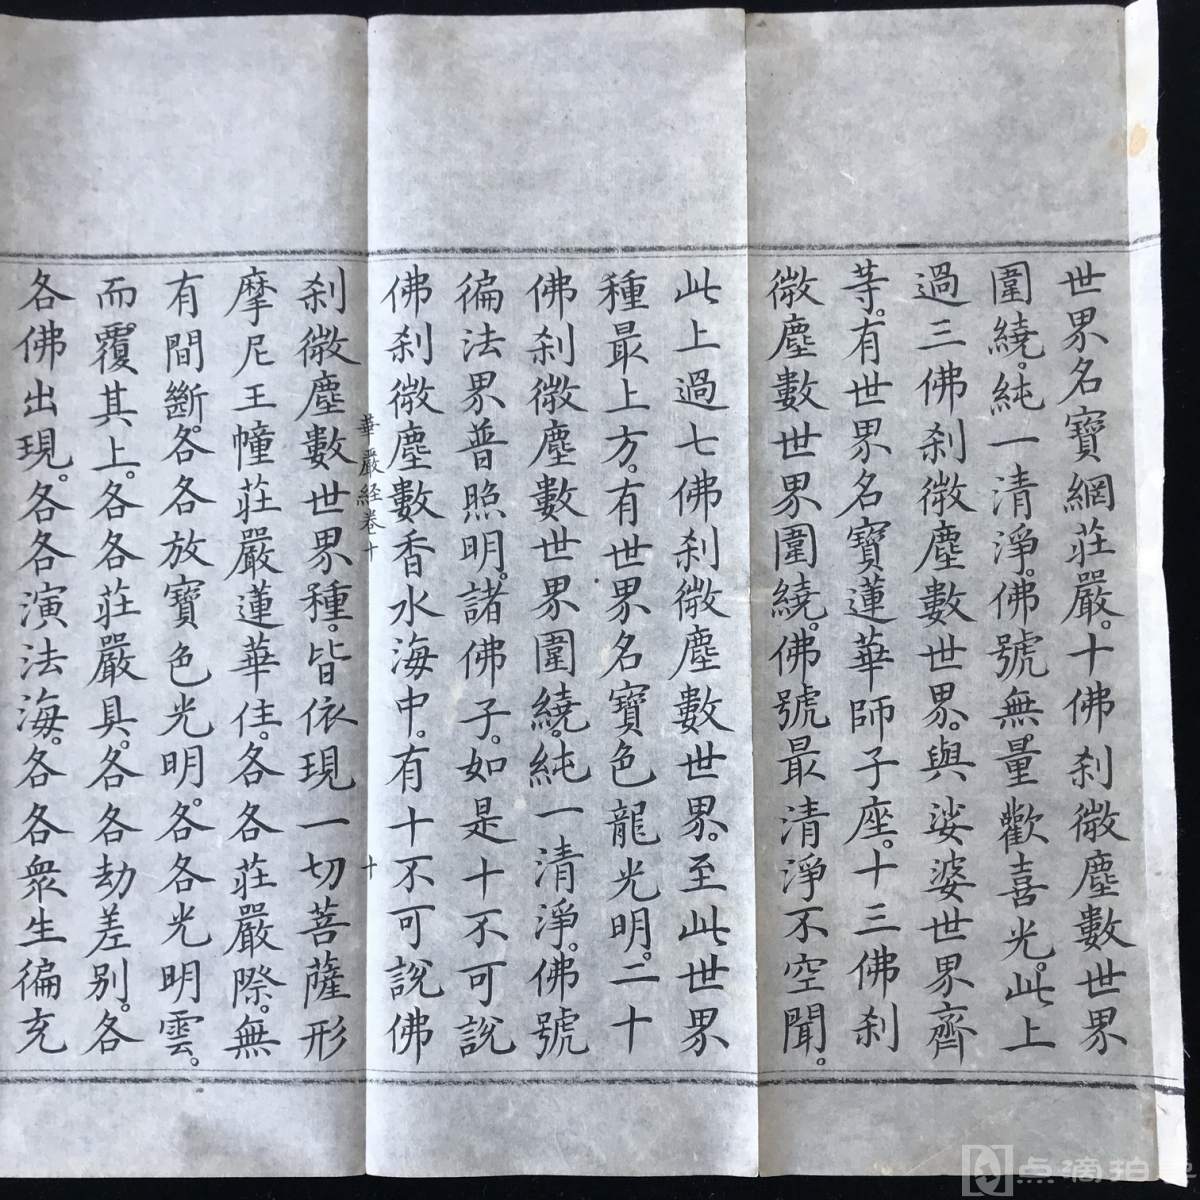 世界名寶網莊嚴。十佛刹微塵數世界
圍繞。純一清淨。佛號無量歡喜光。此上
過三佛刹微塵數世界。與娑婆世界齊
等。有世界名寶蓮華師子座。十三佛刹
微塵數世界圍繞。佛號最清淨不空聞。
此上過七佛刹微塵數世界。至此世界
種最上方。有世界名寶色龍光明。二十
佛刹微塵數世界圍繞。純一清淨。佛號
徧法界普照明。諸佛子。如是十不可說
佛刹微塵數香水海中。有十不可說佛
華嚴経卷十 十
刹微塵數世界種。皆依現一切菩薩形
摩尼王幢莊嚴蓮華住。各各莊嚴際。無
有間斷。各各放寶色光明。各各光明雲。
而覆其上。各各莊嚴具。各各劫差別。各
各佛出現。各各演法海。各各衆生徧充
点滴拍